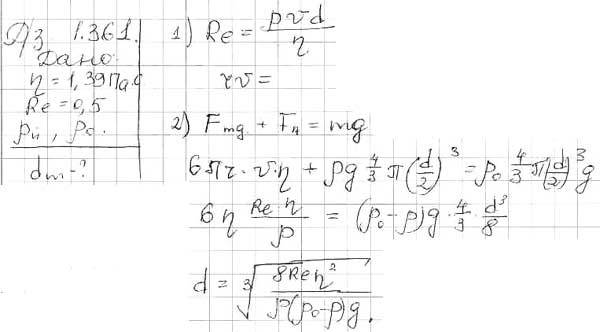 Д/з 1.361.
Дано:
η = 1,39 Па·с
Re = 0,5
ρ₀
dm - ?
1) Re = ρvd/η
rv =
2) Fтр + FА = mg
6πr·v·η + ρg 4/3 π(d/2)³ = ρ₀ 4/3 π(d/2)³g
6η Re·η/ρ = (ρ₀-ρ)g·4/3·d³/8
d = ∛(8Reη²/ρ(ρ₀-ρ)g).